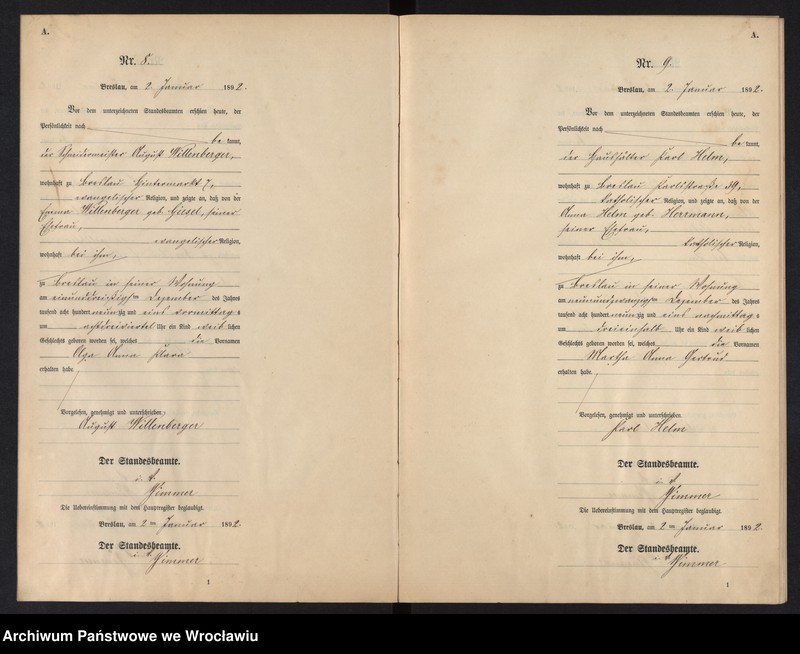 A.
Nr. 8.
Breslau, am 2. Januar 1892.
Vor dem unterzeichneten Standesbeamten erschien heute, der
Persönlichkeit nach
be kannt,
der Schneidermeister August Willenberger,
wohnhaft zu Breslau Hintermarkt 7,
evangelischer Religion, und zeigte an, daß von der
Emma Willenberger geb. Giesel, seiner
Ehefrau,
evangelischer Religion,
wohnhaft bei ihm,
zu Breslau in seiner Wohnung
am einunddreißigsten Dezember des Jahres
tausend acht hundert neunzig und eins vormittags
um achtdreiviertel Uhr ein Kind weiblichen
Geschlechts geboren worden sei, welches die Vornamen
Olga Anna Klara
erhalten habe.
Vorgelesen, genehmigt und unterschrieben:
August Willenberger
Der Standesbeamte.
Zimmer
Die Uebereinstimmung mit dem Hauptregister beglaubigt.
Breslau, am 2ten Januar 1892.
Der Standesbeamte.
Zimmer
1
A.
Nr. 9.
Breslau, am 2. Januar 1892.
Vor dem unterzeichneten Standesbeamten erschien heute, der
Persönlichkeit nach
be kannt,
der Haushälter Karl Helm,
wohnhaft zu Breslau Karlstraße 39,
katholischer Religion, und zeigte an, daß von der
Anna Helm geb. Herrmann,
seiner Ehefrau,
katholischer Religion,
wohnhaft bei ihm,
zu Breslau in seiner Wohnung
am neunundzwanzigsten Dezember des Jahres
tausend acht hundert neunzig und eins nachmittags
um dreieinhalb Uhr ein Kind weiblichen
Geschlechts geboren worden sei, welches die Vornamen
Martha Anna Gertrud
erhalten habe.
Vorgelesen, genehmigt und unterschrieben.
Karl Helm
Der Standesbeamte.
Zimmer
Die Uebereinstimmung mit dem Hauptregister beglaubigt.
Breslau, am 2ten Januar 1892.
Der Standesbeamte.
Zimmer
1
Archiwum Państwowe we Wrocławiu